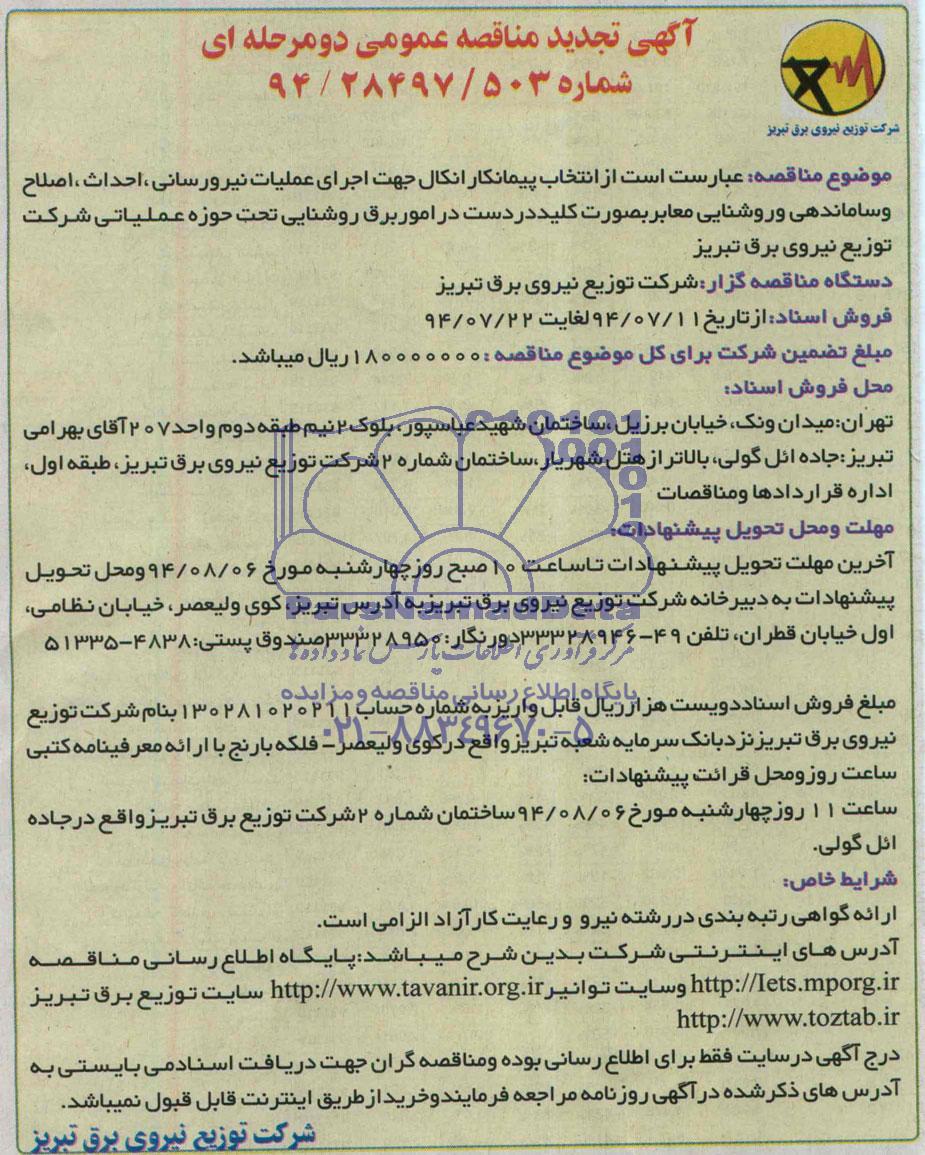 آگهی تجدید مناقصه عمومی دومرحله ای
شماره ۵۰۳/ ۲۸۴۹۷/ ۹۴
شرکت توزیع نیروی برق تبریز
موضوع مناقصه: عبارست است از انتخاب پیمانکار انکال جهت اجرای عملیات نیرورسانی ،احداث ،اصلاح
وساماندهی وروشنایی معابربصورت کلیددردست در اموربرق روشنایی تحت حوزه عملیاتی شرکت
توزیع نیروی برق تبریز
دستگاه مناقصه گزار:شرکت توزیع نیروی برق تبریز
فروش اسناد:ازتاریخ ۹۴/۰۷/۱۱لغایت ۹۴/۰۷/۲۲
مبلغ تضمین شرکت برای کل موضوع مناقصه :۱۸۰۰۰۰۰۰۰۰ریال میباشد.
محل فروش اسناد:
تهران:میدان ونک،خیابان برزیل ،ساختمان شهیدعباسپور، بلوک۲نیم طبقه دوم واحد۲۰۷آقای بهرامی
تبریز:جاده ائل گولی، بالاتر ازهتل شهریار ،ساختمان شماره ۲شرکت توزیع نیروی برق تبریز، طبقه اول،
اداره قراردادها ومناقصات
مهلت ومحل تحویل پیشنهادات:
آخرین مهلت تحویل پیشنهادات تاساعت ۱۰صبح روزچهارشنبه مورخ ۹۴/۰۸/۰۶ومحل تحویل
پیشنهادات به دبیرخانه شرکت توزیع نیروی برق تبریزبه آدرس تبریز، کوی ولیعصر، خیابان نظامی،
اول خیابان قطران، تلفن ۴۹-۳۳۳۲۸۹۴۶دورنگار:۳۳۳۲۸۹۵۰صندوق پستی:۴۸۳۸-۵۱۳۳۵
مبلغ فروش اسناددویست هزارریال قابل واریزبه شماره حساب ۱۳۰۲۸۱۰۲۰۲۱۱بنام شرکت توزیع
نیروی برق تبریزنزدبانک سرمایه شعبه تبریزواقع درکوی ولیعصر- فلکه بارنج با ارائه معرفینامه کتبی
ساعت روزومحل قرائت پیشنهادات:
ساعت ۱۱ روزچهارشنبه مورخ۹۴/۰۸/۰۶ساختمان شماره ۲شرکت توزیع برق تبریزواقع درجاده
ائل گولی.
شرایط خاص:
ارائه گواهی رتبه بندی دررشته نیرو و رعایت کارآزاد الزامی است.
آدرس های اینترنتی شرکت بدین شرح میباشد:پایگاه اطلاع رسانی مناقصه
http://Iets.mporg.ir وسایت توانیرhttp://www.tavanir.org.ir سایت توزیع برق تبریز
http://www.toztab.ir
درج آگهی درسایت فقط برای اطلاع رسانی بوده ومناقصه گران جهت دریافت اسنادمی بایستی به
آدرس های ذکرشده درآگهی روزنامه مراجعه فرمایندوخریدازطریق اینترنت قابل قبول نمیباشد.
شرکت توزیع نیروی برق تبریز
ParsNamadData
مرکز فرآوری اطلاعات پارس نماد داده ها
پایگاه اطلاع رسانی مناقصه و مزایده
۰۲۱-۸۸۳۴۹۶۷۰-۵